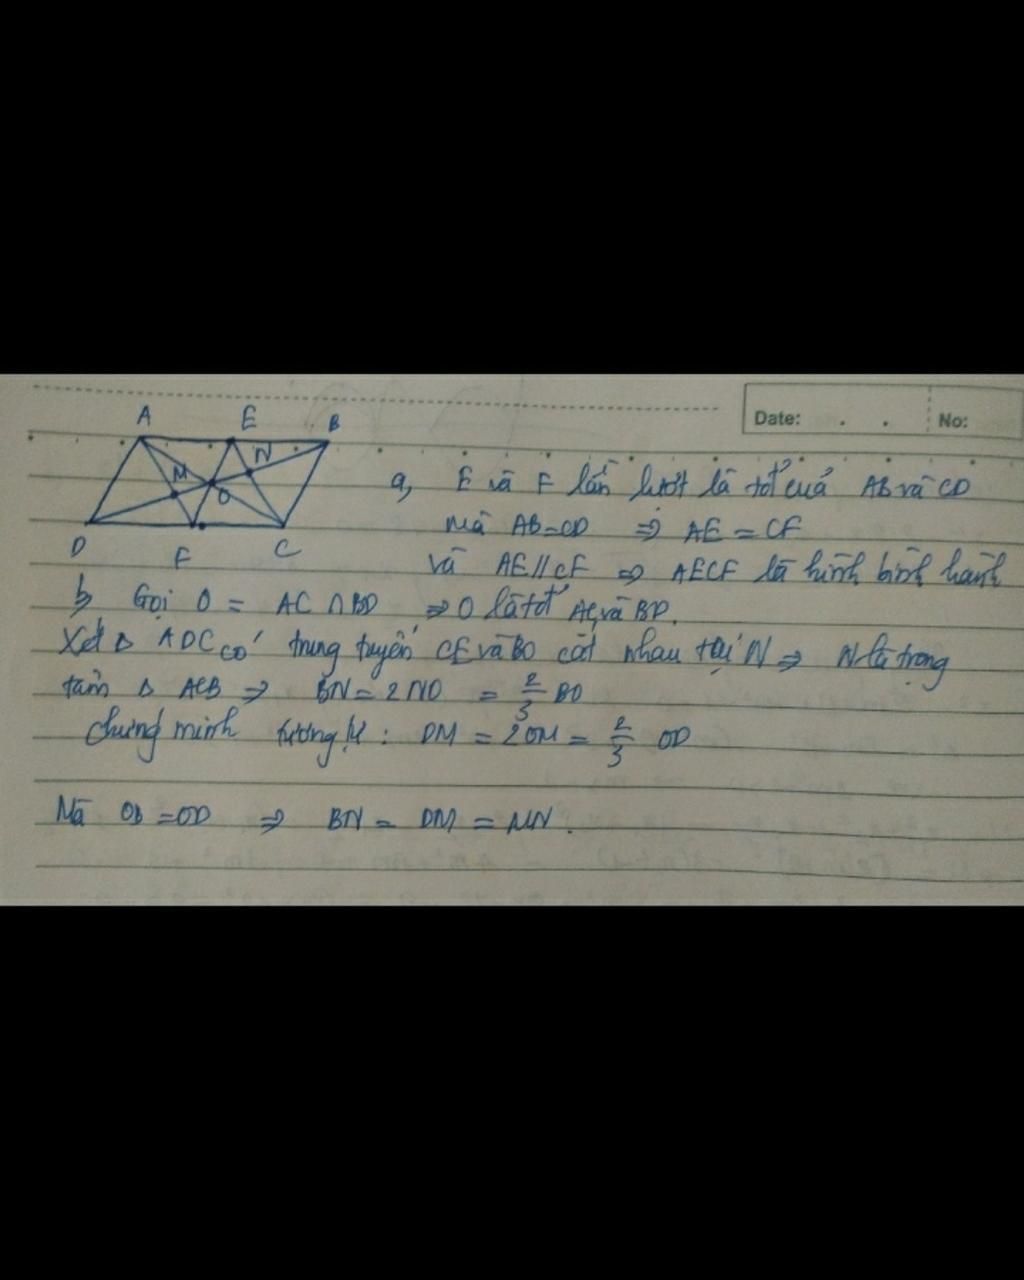 Date: . . No:
A E B
M N
O
D F C
a, E và F lần lượt là tđ của AB và CD
mà AB=CD ⇒ AE = CF
và AE // CF ⇒ AECF là hình bình hành
b, Gọi O = AC ∩ BD ⇒ O là tđ AC và BD.
Xét Δ ADC có trung tuyến CE và BO cắt nhau tại N ⇒ N là trọng
tâm Δ ACB ⇒ BN = 2NO = 2/3 BO
chứng minh tương tự : DM = 2OM = 2/3 OD
Mà OB = OD ⇒ BN = DM = MN.